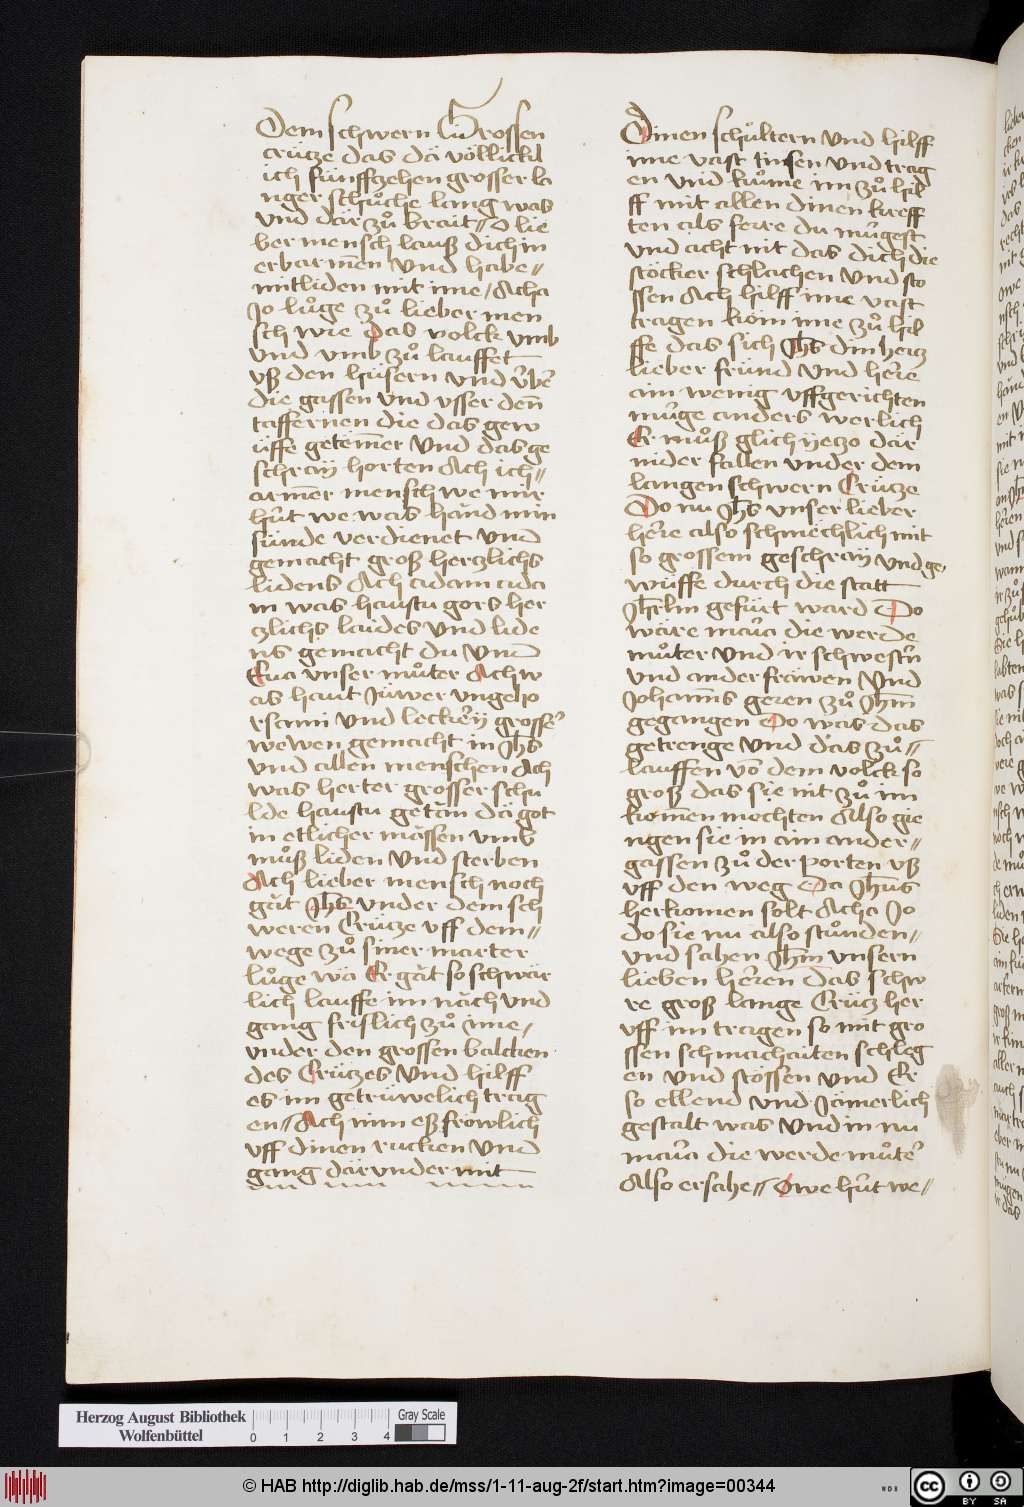 Dem schwern Grossen
crütze das dä völlickl
ich fünffczehen grosser la
nger schůche lang was
vnd där zů brait // O lie
ber mensch lauß dich in
erbarmen vnd habe //
mitliden mit ime / Acha
Jo lůge zů lieber men
sch wie das volck vmb
vnd vmb zů lauffet
vß den hüsern vnd v̈ber
die gassen vnd vsser den̄
taffernen die das gew
üffe getem̄er vnd das ge
schray horten Ach ich //
armer mensch we mir
hüt we was händ min
sünde verdienet vnd
gemacht groß herczlichs
lidens Ach adam ada
m was haustu gors her
czlichs laides vnd lide
ns gemacht du vnd
Eua vnser můter Ach w
as haut jüwer vngeho
rsami vnd leckery grosse
wewen gemacht in Jhs
vnd allen menschen Ach
was herter grosser schu
lde haustu getän dä got
in etlicher mässen vmb
můß liden vnd sterben
Ach lieber mensch noch
gät Jhs vnder dem sch
weren Crütze vff dem //
wege zů siner marter
lůge wä Er gät so schwär
lich lauffe im näch vnd
gang frislich zů ime /
vnder den grossen balcken
des Crützes vnd hilff
es im getrüwelich trag
en // Ach nim eß fröwlich
vff dinen rucken vnd
gang där vnder mit
Dinen schůltern vnd hilff
ime vast tinsen vnd trag
en vnd kůme im zů hil
ff mit allen dinen kreff
ten als ferre du mügest
vnd acht nit das dich die
stöcker schlachen vnd sto
ssen Ach hilff ime vast
tragen kom ime zů hil
ffe das sich Jhs din hertz
lieber fründ vnd herre
ain wenig vffgerichten
müge anders werlich
Er můß glich yeczo där
nider fallen vnder dem
langen schwern Crütze
Do nu Jhs vnser lieber
herre also schmechlich mit
so grossem geschray vnd ge
wüffe durch die statt
Jhrlm gefürt ward Do
wäre maria die werde
můter vnd ir schwestern
vnd ander fräwen vnd
Johannes geren zů Jhm
gegangen Do was das
getrenge vnd das zů //
lauffen vō dem volck so
groß das sie nit zů im
komen mochten Also gie
ngen sie in ain ander //
gassen zů der porten vß
vff den weg Da Jhus
herkomen solt Acha Jo
do sie nu also stůnden //
vnd sahen Jhm unsern
lieben herren das schw
re groß lange Crütz her
vff im tragen so mit gro
ssen schmachaiten schleg
en vnd stössen vnd Er
so ellend vnd Jämerlich
gestalt was vnd in nu
maria die werde můter
Also ersahe // Owe hüt we //
Herzog August Bibliothek
Wolfenbüttel
0 1 2 3 4
Gray Scale
© HAB http://diglib.hab.de/mss/1-11-aug-2f/start.htm?image=00344
WDB
cc BY SA